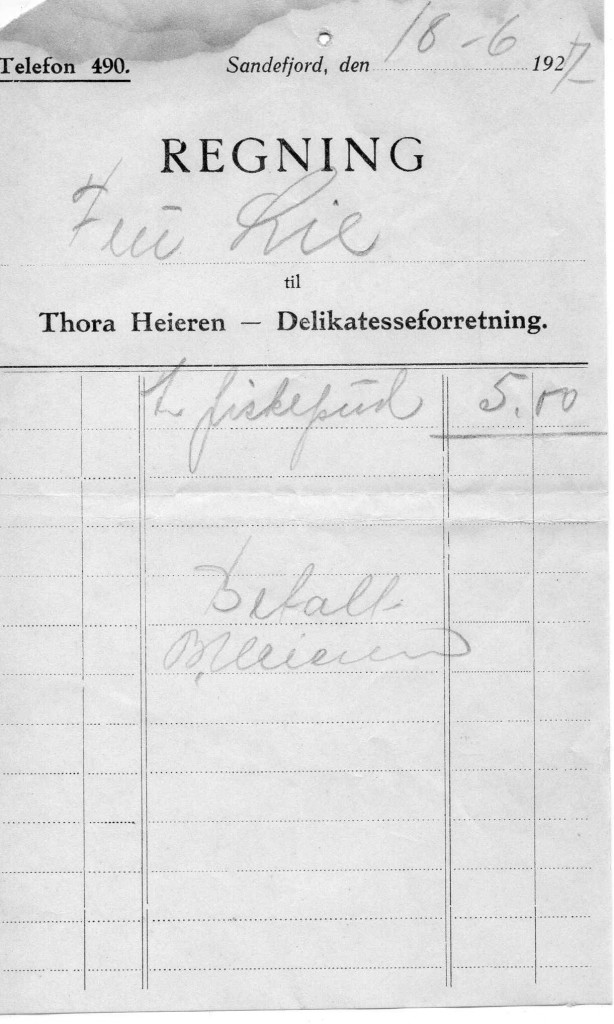 Telefon 490. Sandefjord, den 18-6 1927
REGNING
Fru Lie
til
Thora Heieren — Delikatesseforretning.
1 fiskepud 5.00
Betalt
Heieren